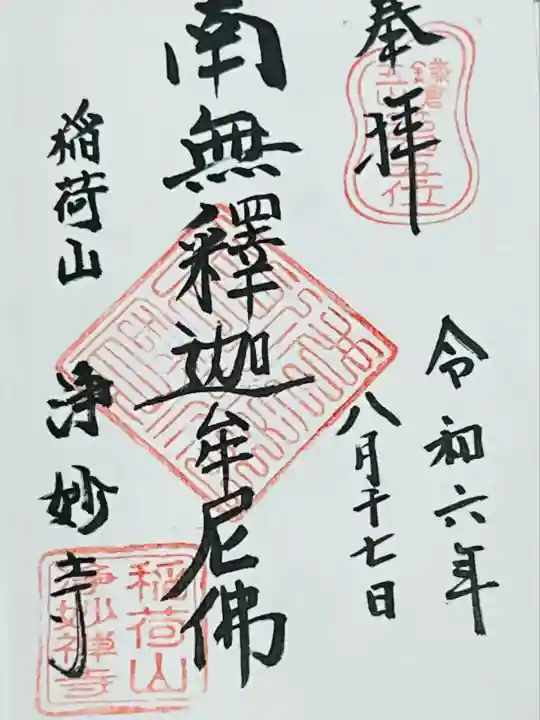 奉拝
鎌倉
五山第五位
令和六年
八月十七日
南無釋迦牟尼佛
稲荷山 浄妙寺
稲荷山
浄妙禅寺